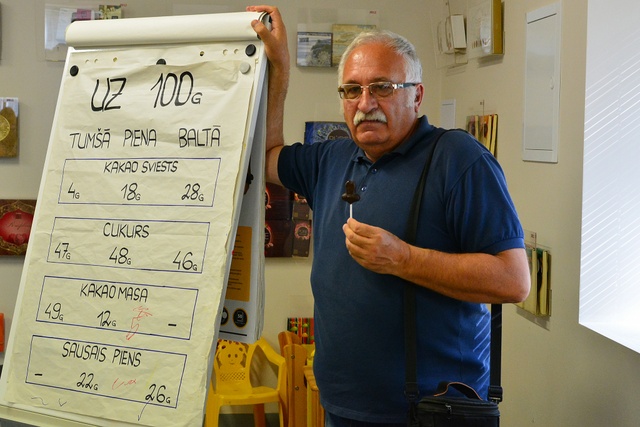 UZ 100G
TUMŠĀ PIENA BALTĀ
KAKAO SVIESTS
4G 18G 28G
CUKURS
47G 48G 46G
KAKAO MASA
49G 12G -
SAUSAIS PIENS
- 22G 26G